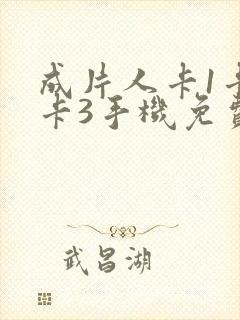 成片人卡1卡
卡3手機免費
武昌湖